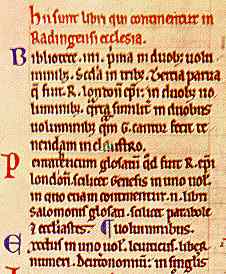 Hii sunt libri qui continentur in
Radingensi ecclesia.
Bibliotece .iiii. p̃ma in duob; volu
minib;. Sc̃da in trib;. Tertia parua
q̃ fuit R. london̄ ep̃i: in duob; uo
luminib;. q̃rta similit̃ in duobus
uoluminib; qm̃ G. cantor fecit te
nendam in claustro.
Pentateucum glosatũ qd̃ fuit R. ep̃i
london̄. scilicet Genesis in uno vol.
in quo etiam continentur .ii. libri
salomonis glosati. scilicet parabole
& eccl̃iastes. uoluminibus.
Exodus in uno vol. leuiticus. liber
numeri. Deut̃onomiũ: in singlis